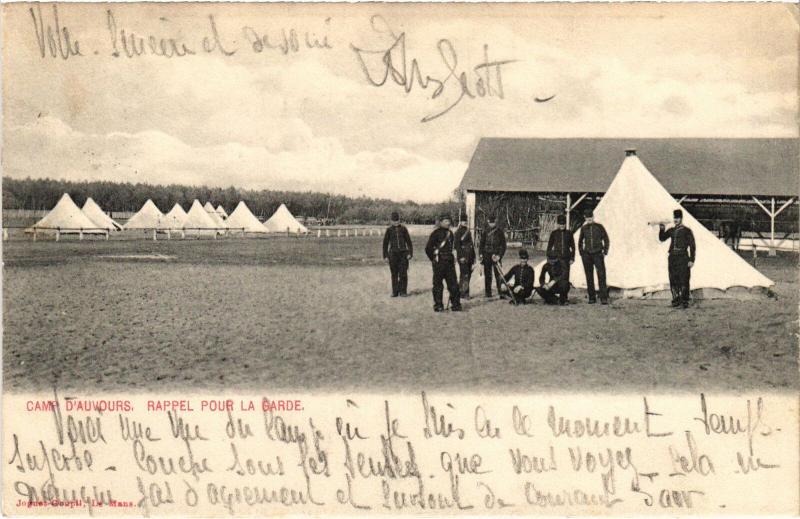 Votre sincère et dévoué
CAMP D'AUVOURS. RAPPEL POUR LA GARDE.
Voici une vue du Camp où je suis en ce moment - Temps
superbe - Couche sous les tentes que vous voyez - Cela ne
manque pas d'agrément et surtout de courant d'air.
Joguet-Goupil, Le Mans.